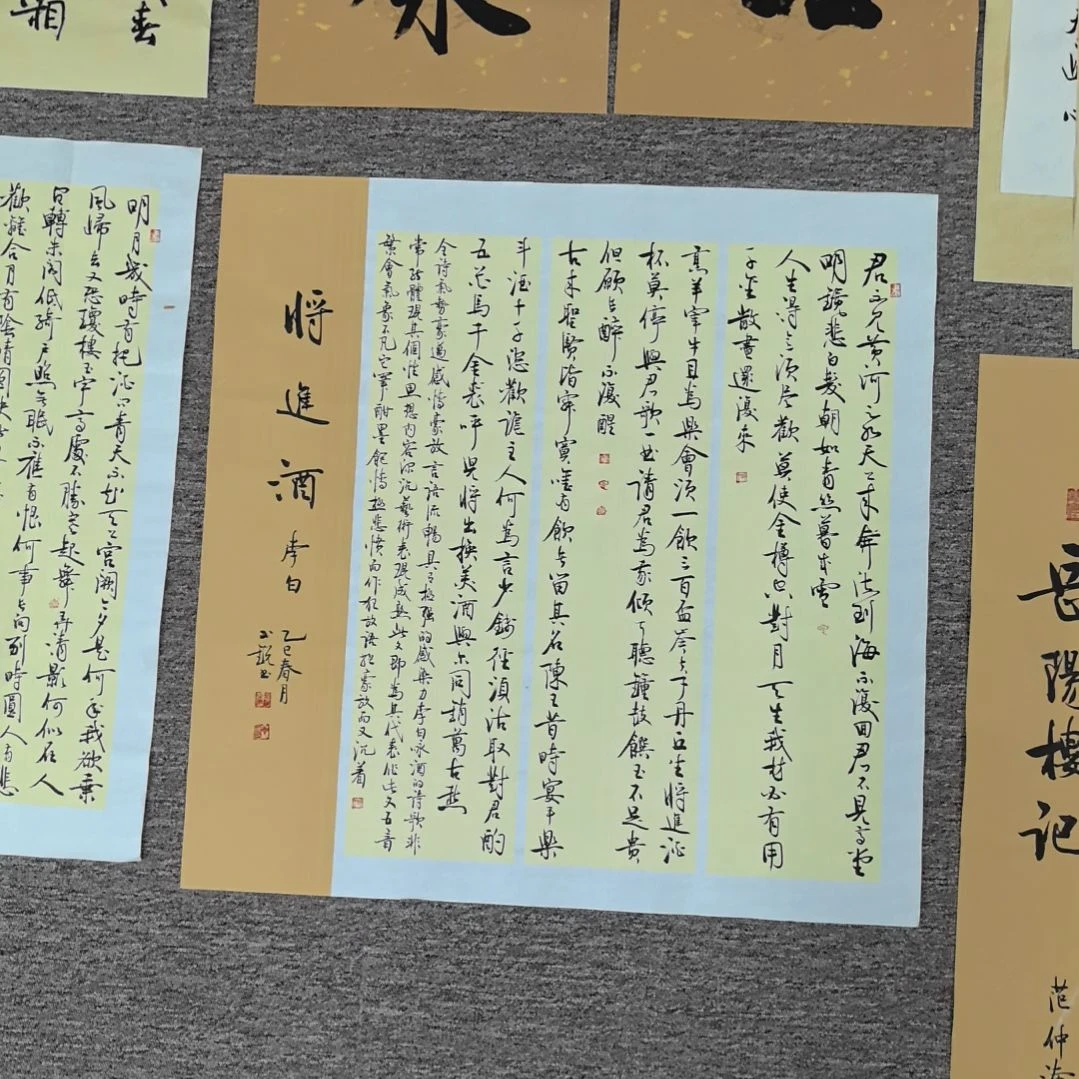 君不見黃河之水天上來奔流到海不復回君不見高堂
明鏡悲白髮朝如青絲暮成雪
人生得意須盡歡莫使金樽空對月天生我材必有用
千金散盡還復來
烹羊宰牛且為樂會須一飲三百盃岑夫子丹丘生將進酒
杯莫停與君歌一曲請君為我傾耳聽鐘鼓饌玉不足貴
但願長醉不復醒
古來聖賢皆寂寞唯有飲者留其名陳王昔時宴平樂
斗酒十千恣歡謔主人何為言少錢徑須沽取對君酌
五花馬千金裘呼兒將出換美酒與尔同銷萬古愁
全詩氣勢豪邁感情豪放言語流暢具有極強的感染力李白詠酒的詩歌非
常能體現其個性思想內容深沉藝術表現成熟此文即為其代表作此文五音
繁會氣象不凡它筆酣墨飽情極悲憤而作狂放語極豪放而又沉着
將進酒
李白
乙巳春月
明月幾時有把酒問青天不知天上宮闕今夕是何年我欲乘
風歸去又恐瓊樓玉宇高處不勝寒起舞弄清影何似在人
間轉朱閣低綺戶照無眠不應有恨何事長向別時圓人有悲
歡離合月有陰晴圓缺
岳陽樓記
范仲淹